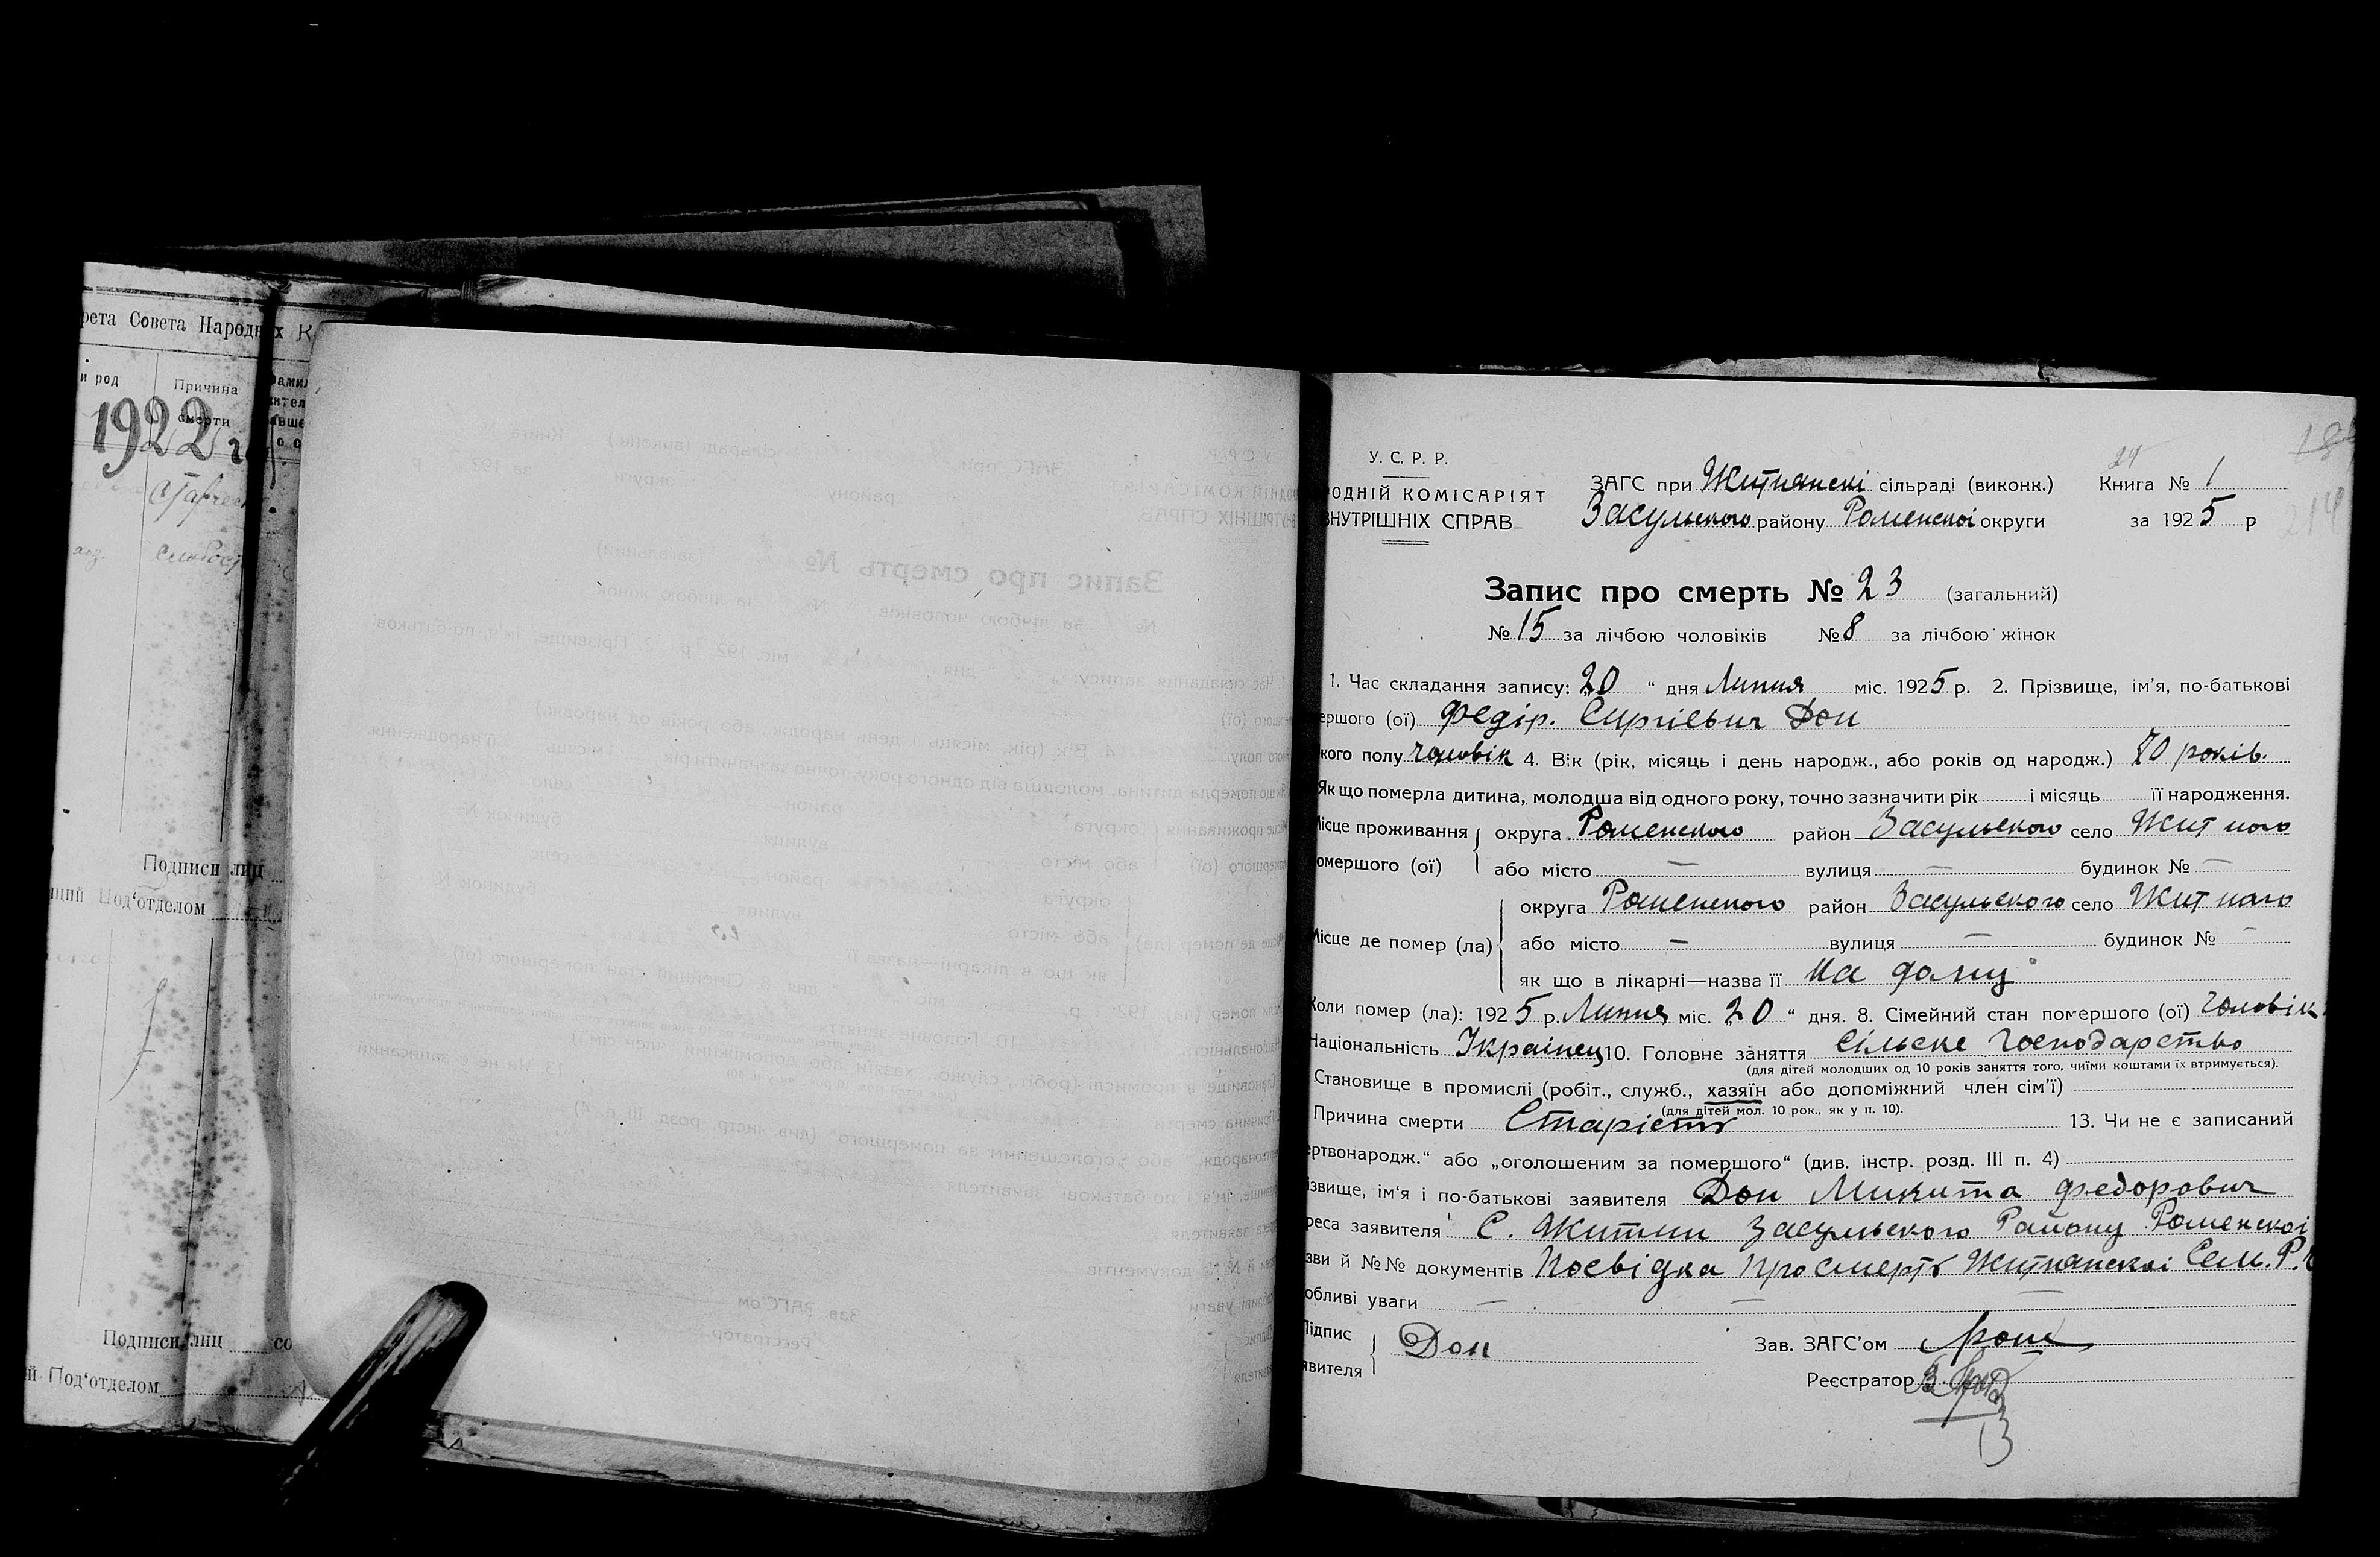 рета Совета Народных К
и род
Причина
смерти
1922 г.
Подписи лиц
Под‘отделом
Подписи лиц со
й Под‘отделом
24
У. С. Р. Р.
ЗАГС при Житнянскі сільраді (виконк.) Книга № 1
РОДНІЙ КОМІСАРІЯТ
ВНУТРІШНІХ СПРАВ Засульского району Роменскоі округи за 1925 р
214
Запис про смерть № 23 (загальний)
№ 15 за лічбою чоловіків № 8 за лічбою жінок
1. Час складання запису: „20“ дня Липня міс. 1925 р. 2. Прізвище, ім’я, по-батькові
ершого (ої) Федір. Сиргієвич Дон
кого полу чоловік 4. Вік (рік, місяць і день народж., або років од народж.) 70 років.
Як що померла дитина, молодша від одного року, точно зазначити рік і місяць її народження.
Місце проживання округа Роменского район Засульского село Житного
омершого (ої) або місто — вулиця — будинок № —
округа Роменского район Засульского село Житного
Місце де помер (ла) або місто — вулиця — будинок № —
як що в лікарні—назва її На дому
Коли помер (ла): 1925 р. Липня міс. „20“ дня. 8. Сімейний стан помершого (ої) чоловік
Національність Украінец 10. Головне заняття Сільске Господарство
(для дітей молодших од 10 років заняття того, чиїми коштами їх втримується).
Становище в промислі (робіт., служб., хазяїн або допоміжний член сім’ї)
(для дітей мол. 10 рок., як у п. 10).
Причина смерти Старість 13. Чи не є записаний
ертвонародж.“ або „оголошеним за помершого“ (див. інстр. розд. III п. 4)
ізвище, ім‘я і по-батькові заявителя Дон Микита Федорович
реса заявителя С. Житни Засульского Району Роменскоі
зви й №№ документів Посвідка про смерть Житнянскоі Сем. Р.
обливі уваги — — —
Підпис
явителя Дон Зав. ЗАГС’ом
Реєстратор